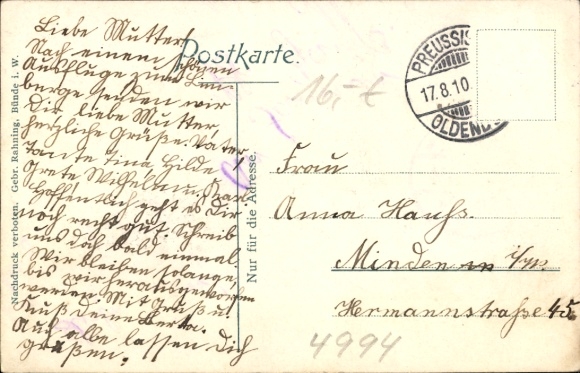 Liebe Mutter!
Nach einem schönen
Ausfluge zum Lim-
berge senden wir
Dir, liebe Mutter,
herzliche Grüße. Vater
Tante Tina, Hilde
Grete Wilhelm u.
Hoffentlich geht es Dir
noch recht gut. Schreib
uns doch bald einmal
Wir bleiben solange,
bis wir herausgeworfen
werden. Mit Gruß u.
Kuß Deine Berta.
Auch alle lassen Dich
grüßen.
Postkarte.
Nachdruck verboten. Gebr. Rahning, Bünde i. W.
Nur für die Adresse.
PREUSSIS
17.8.10
OLDEND
16,-
Frau
Anna Hauss.
Minden in
Hermannstraße 45.
4994